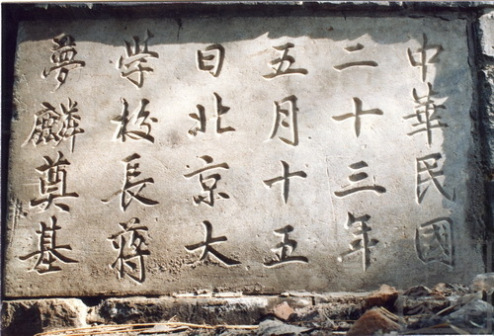 中華民國
二十三年
五月十五
日北京大
學校長蔣
夢麟奠基